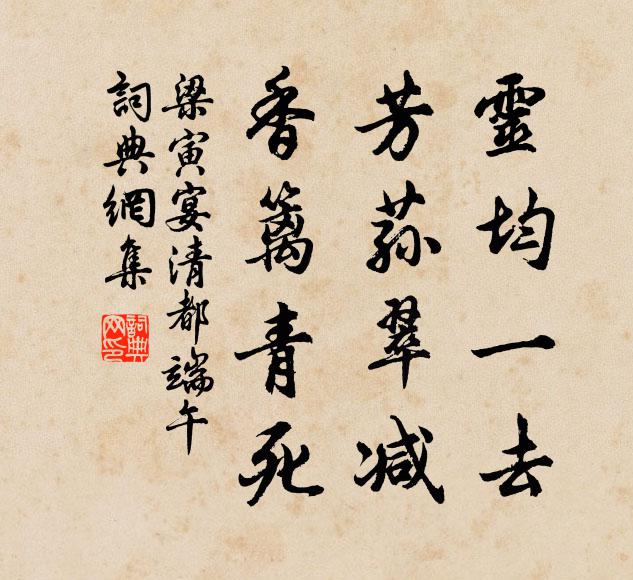 靈均一去
芳荪翠减
香篱青死
梁寅宴清都端午
詞典網集
詞典网印